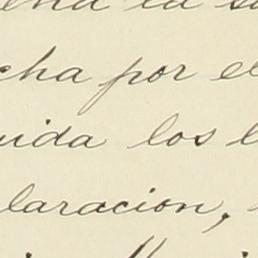 ena la s
cha por el
uida los l
laracion,